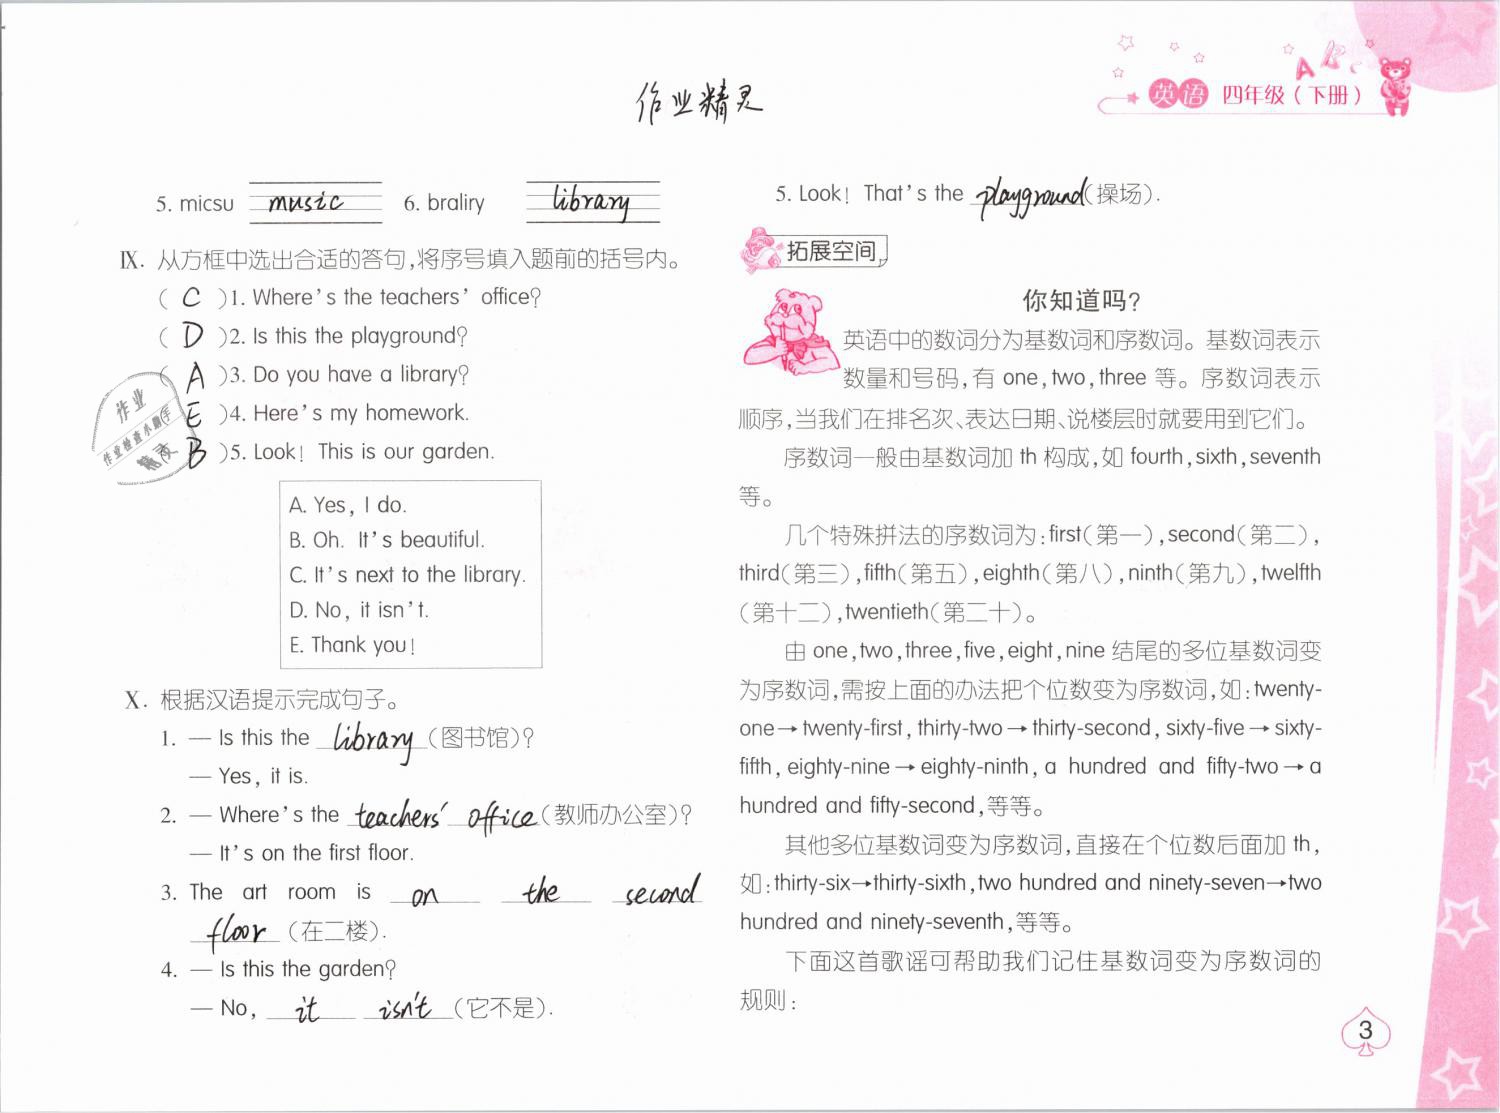 英语 四年级(下册)
作业精灵
5. micsu music 6. braliry library
Ⅸ. 从方框中选出合适的答句,将序号填入题前的括号内。
( C )1. Where's the teachers' office?
( D )2. Is this the playground?
( A )3. Do you have a library?
( E )4. Here's my homework.
( B )5. Look! This is our garden.
作业
作业检查小助手
精灵
A. Yes, I do.
B. Oh. It's beautiful.
C. It's next to the library.
D. No, it isn't.
E. Thank you!
Ⅹ. 根据汉语提示完成句子。
1. — Is this the library (图书馆)?
— Yes, it is.
2. — Where's the teachers' office (教师办公室)?
— It's on the first floor.
3. The art room is on the second
floor (在二楼).
4. — Is this the garden?
— No, it isn't (它不是).
5. Look! That's the playground(操场).
拓展空间
你知道吗?
英语中的数词分为基数词和序数词。基数词表示
数量和号码,有 one,two,three 等。序数词表示
顺序,当我们在排名次、表达日期、说楼层时就要用到它们。
序数词一般由基数词加 th 构成,如 fourth,sixth,seventh
等。
几个特殊拼法的序数词为:first(第一),second(第二),
third(第三),fifth(第五),eighth(第八),ninth(第九),twelfth
(第十二),twentieth(第二十)。
由 one,two,three,five,eight,nine 结尾的多位基数词变
为序数词,需按上面的办法把个位数变为序数词,如:twenty-
one→twenty-first, thirty-two→thirty-second, sixty-five→sixty-
fifth, eighty-nine→eighty-ninth, a hundred and fifty-two→a
hundred and fifty-second,等等。
其他多位基数词变为序数词,直接在个位数后面加 th,
如:thirty-six→thirty-sixth,two hundred and ninety-seven→two
hundred and ninety-seventh,等等。
下面这首歌谣可帮助我们记住基数词变为序数词的
规则:
3